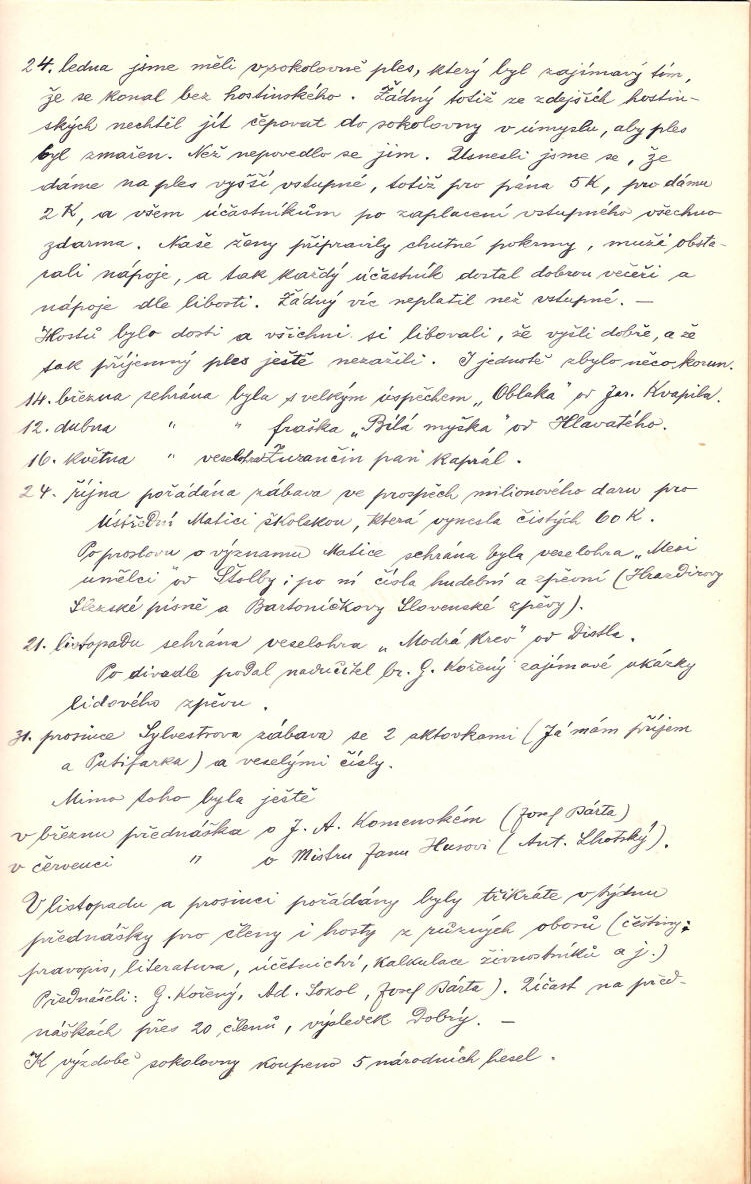 24. ledna jsme měli v sokolovně ples, který byl zajímavý tím,
že se konal bez hostinského. Žádný totiž ze zdejších hostin-
ských nechtěl jít čepovat do sokolovny v úmyslu, aby ples
byl zmařen. Než nepovedlo se jim. Usnesli jsme se, že
dáme na ples vyšší vstupné, totiž pro pána 5 K, pro dámu
2 K, a všem účastníkům po zaplacení vstupného všechno
zdarma. Naše ženy připravily chutné pokrmy, muži obsta-
rali nápoje, a tak každý účastník dostal dobrou večeři a
nápoje dle libosti. Žádný víc neplatil než vstupné. —
Hostů bylo dosti a všichni si libovali, že vyšli dobře, a že
tak příjemný ples ještě nezažili. I jednotě zbylo něco korun.
14. března sehrána byla s velkým úspěchem „Oblaka" od Jar. Kvapila.
12. dubna " " fraška „Bílá myška" od Hlavatého.
16. května " veselohra Zuzančin pan kaprál.
24. října pořádána zábava ve prospěch milionového daru pro
Ústřední Matici školskou, která vynesla čistých 60 K.
Po proslovu o významu Matice sehrána byla veselohra „Mezi
umělci" od Štolby; po ní čísla hudební a zpěvní (Hrazdirovy
Slezské písně a Bartoníčkovy Slovenské zpěvy).
21. listopadu sehrána veselohra „Modrá krev" od Distla.
Po divadle podal nadučitel br. G. Kořený zajímavé ukázky
lidového zpěvu.
31. prosince Sylvestrova zábava se 2 aktovkami (Já mám příjem
a Putifarka) a veselými čísly.
Mimo toho byla ještě
v březnu přednáška o J. A. Komenském (Josef Bárta)
v červenci " o Mistru Janu Husovi (Ant. Lhotský).
V listopadu a prosinci pořádány byly třikráte v týdnu
přednášky pro členy i hosty z různých oborů (čeština:
pravopis, literatura, účetnictví, kalkulace živnostníků a j.)
Přednášeli: G. Kořený, Ad. Sokol, Josef Bárta). Účast na před-
náškách přes 20 členů, výsledek dobrý. —
K výzdobě sokolovny koupeno 5 národních hesel.